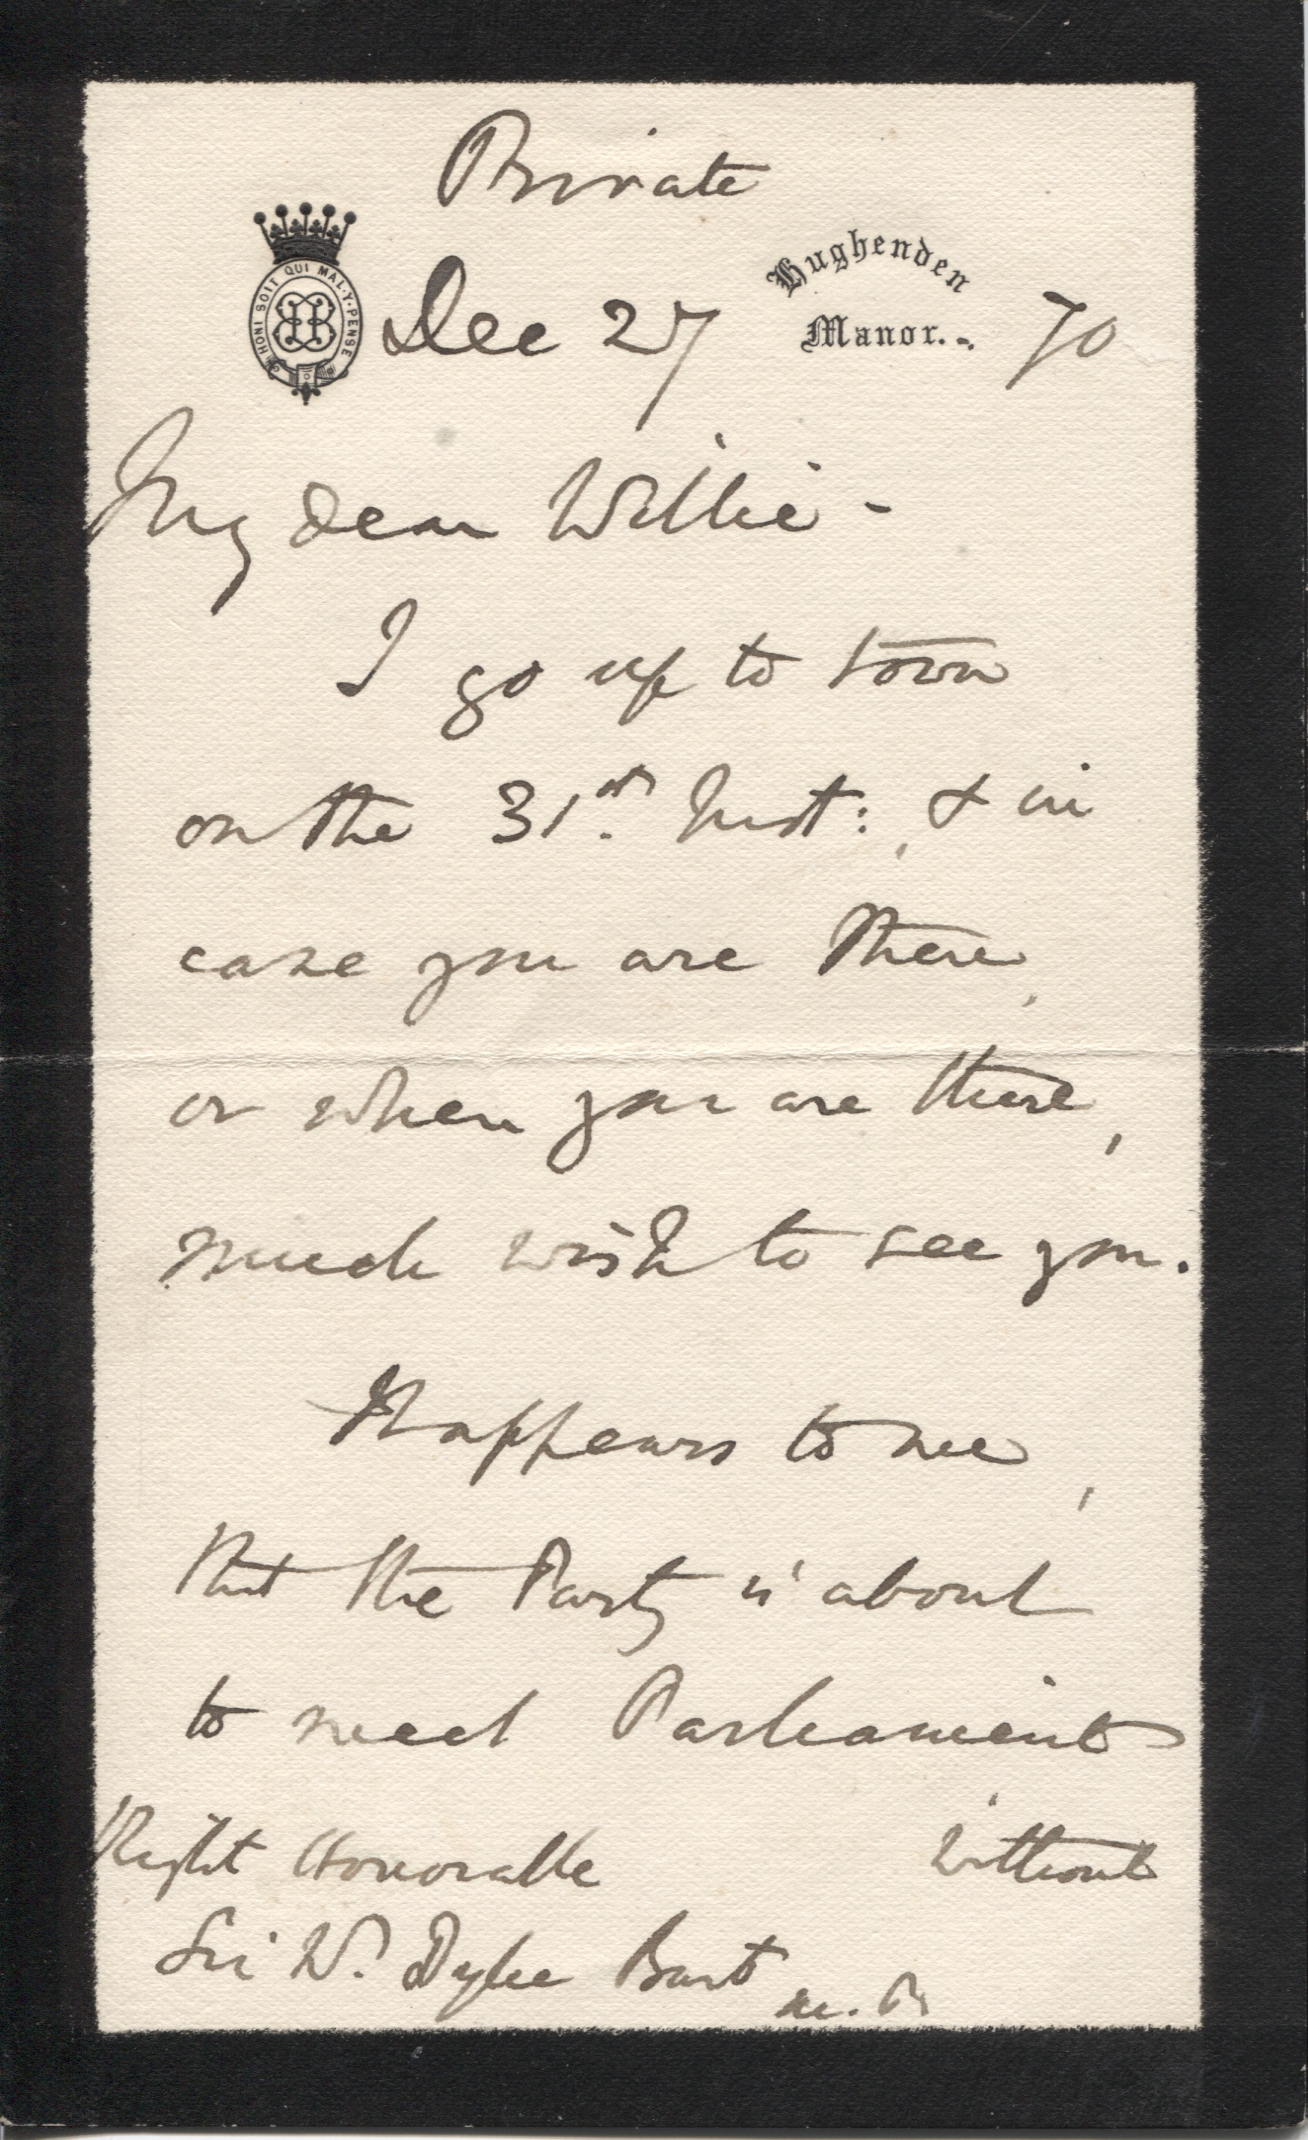 Private
HONI SOIT QUI MAL·Y·PENSE
Hughenden
Manor.
Dec 27 70
My dear Willie -
I go up to town
on the 31st. Inst:, & in
case you are there,
or when you are there,
much wish to see you.
It appears to me,
that the Party is about
to meet Parliament
without
Right Honorable
Sir W. Dyke Bart
M.P.